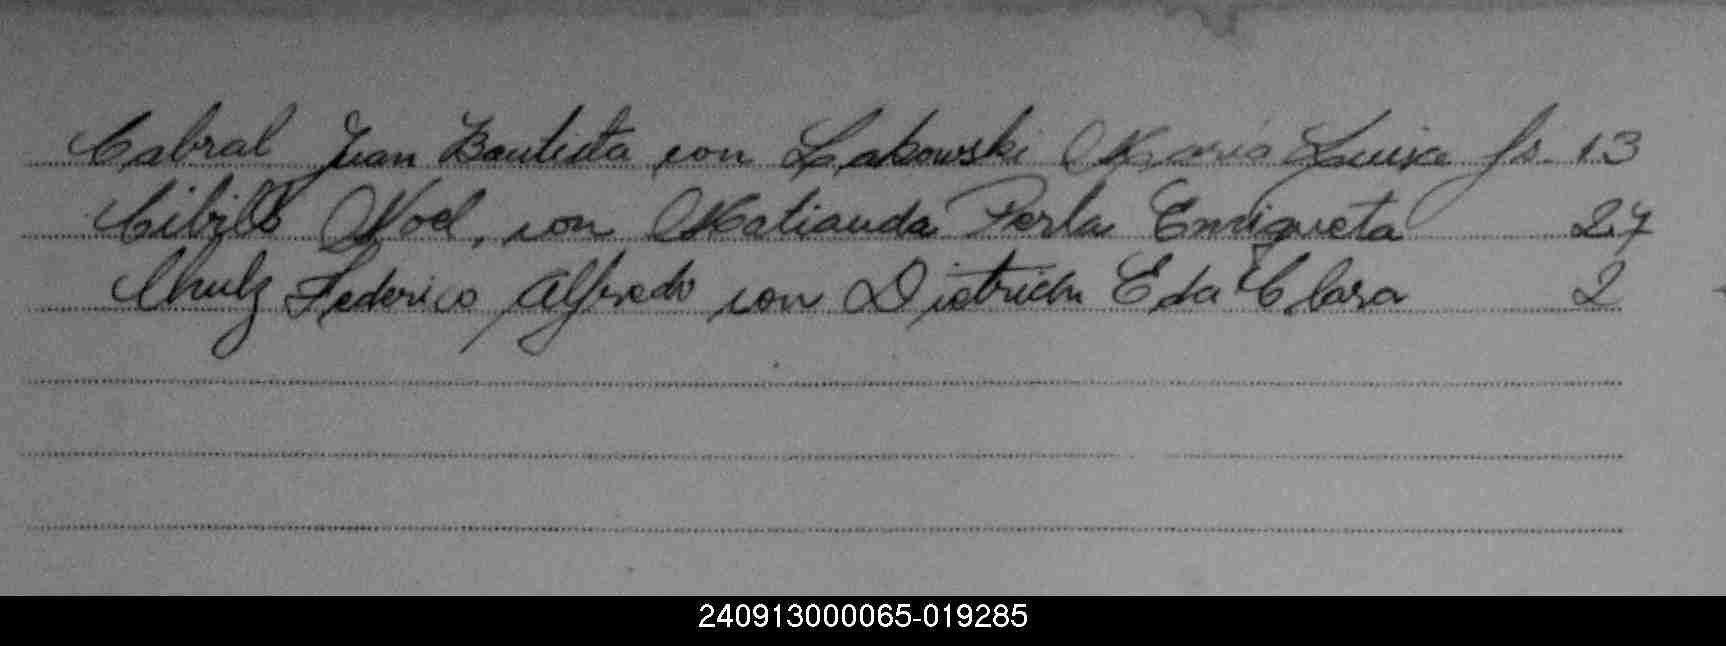 Cabral Juan Bautista con Labowski Maria Luisa fs. 13
Cibils Noel, con Matiauda Perla Enriqueta 27
Chulz Federico Alfredo con Districh Eda Clara 2
240913000065-019285